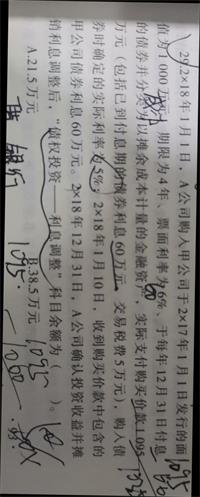 29.2×18年1月1日，A公司购入甲公司于2×17年1月1日发行的面
值为1 000万元、期限为4年、票面利率为6%、于每年12月31日付息
的债券并分类为以摊余成本计量的金融资产，实际支付购买价款1 095
万元（包括已到付息期的债券利息60万元，交易税费5万元），购入债
券时确定的实际利率为5%。2×18年1月10日，收到购买价款中包含的
甲公司债券利息60万元。2×18年12月31日，A公司确认投资收益并摊
销利息调整后，“债权投资——利息调整”科目余额为（ ）。
A.21.5万元 B.38.5万元
银行
1095
1095
1000
1095